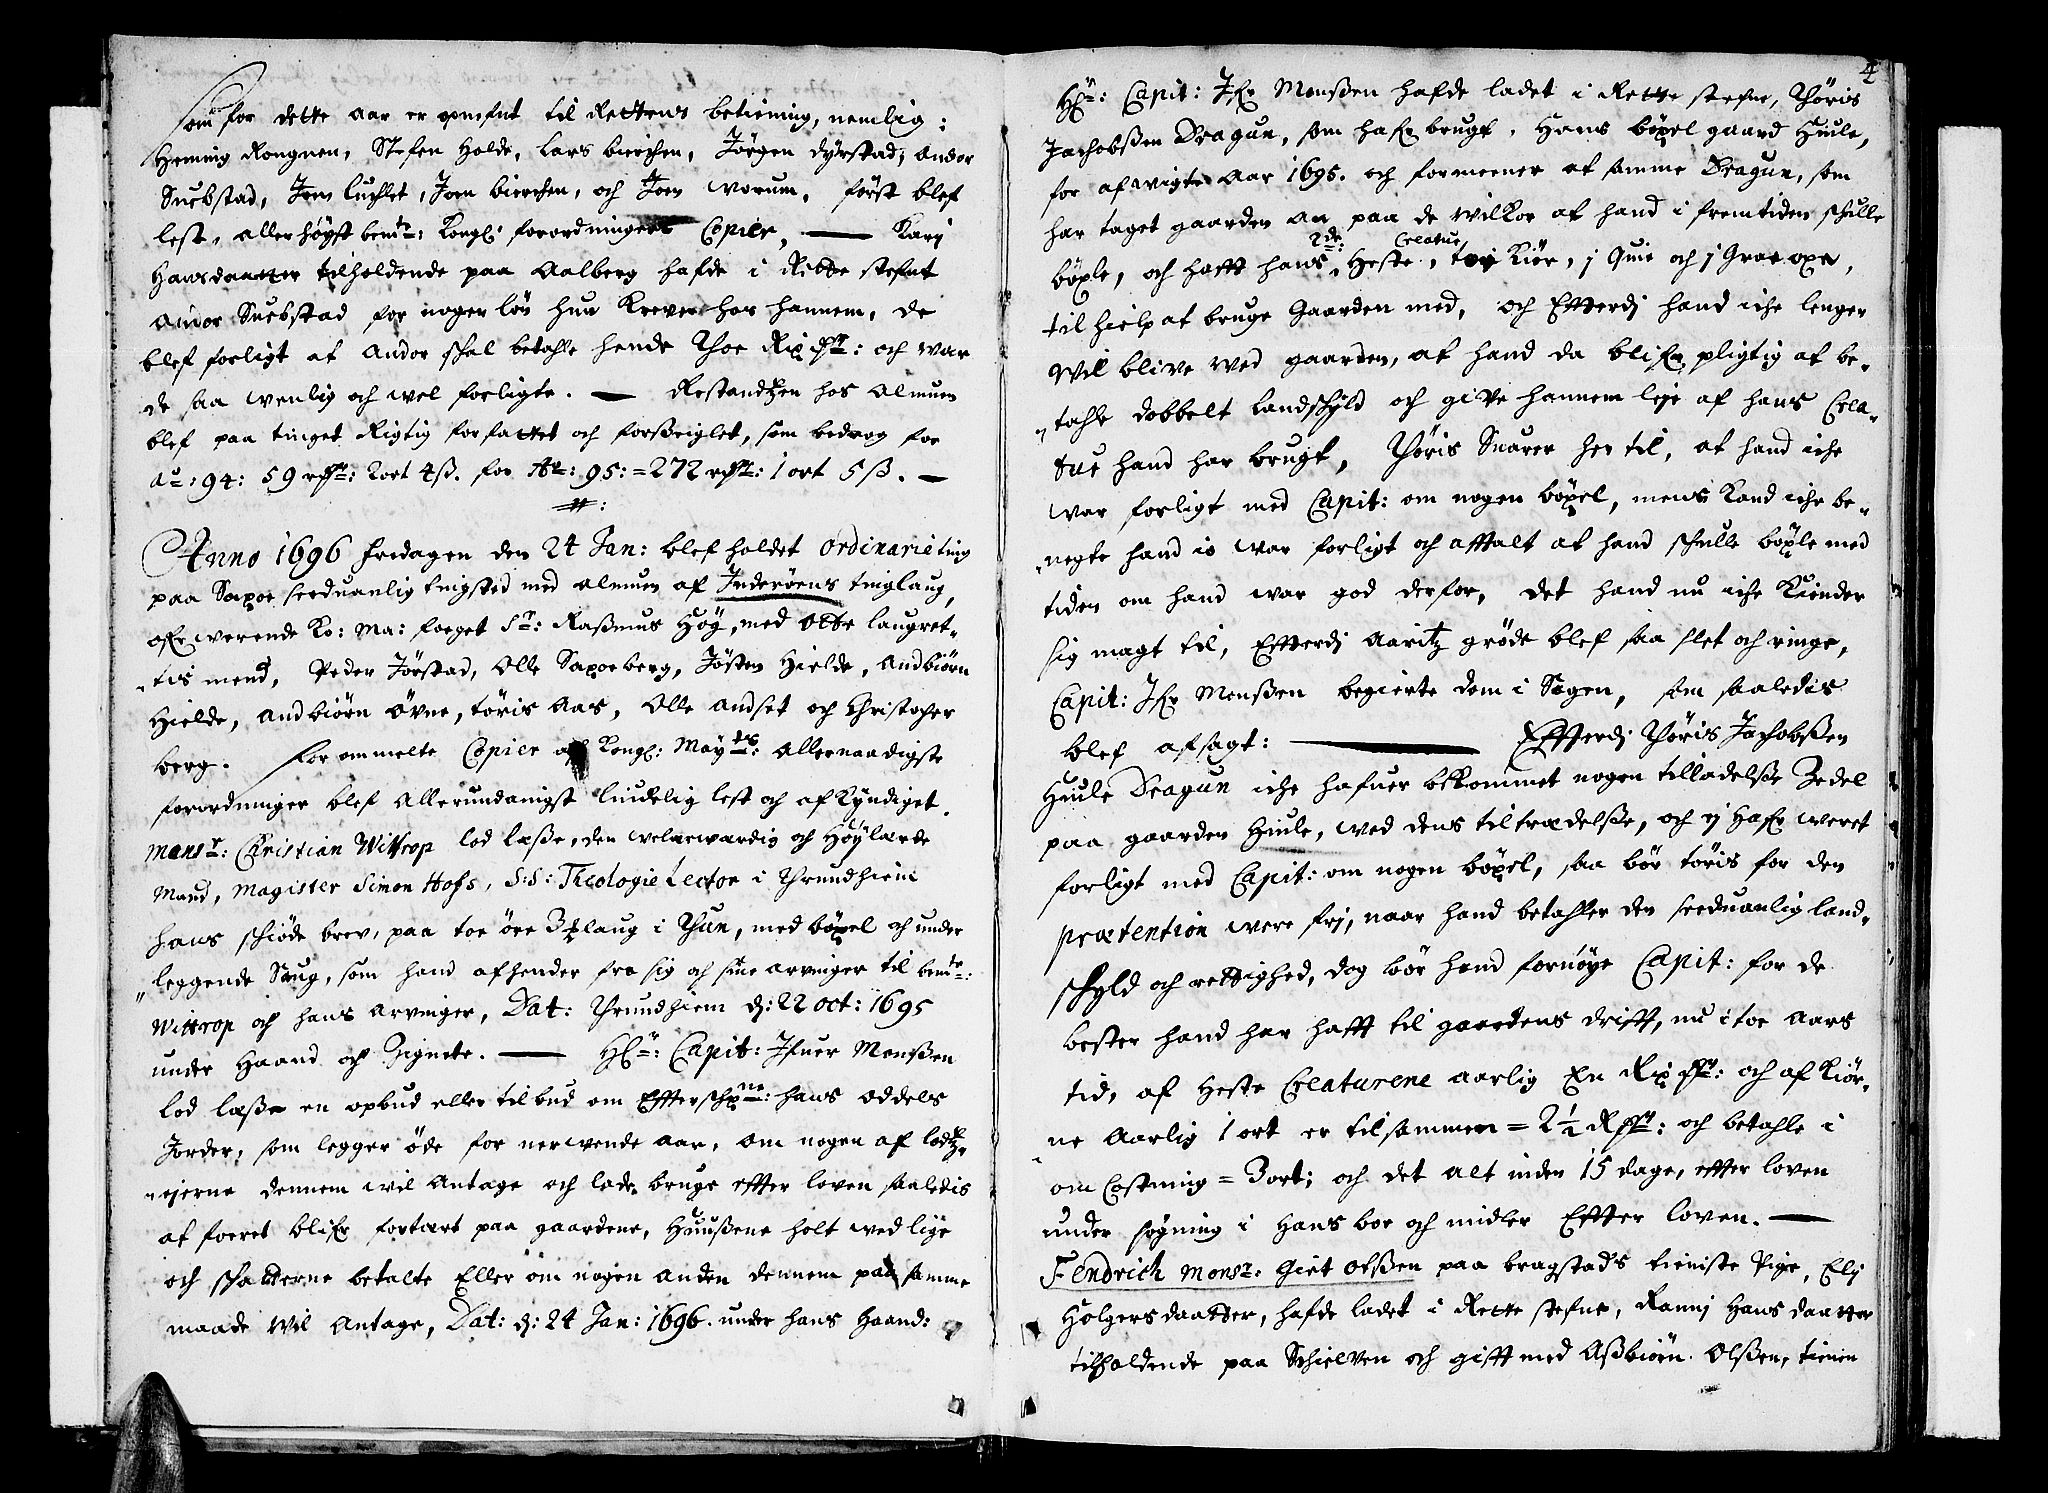 som for dette aar er opnefnt til Rettens betiening, nemlig:
Heming Rongnen, Stefen Holde, Lars bierchen, Jörgen dyrstad, Andor
Suebstad, Joen luchlet, Joen bierchen, och Joen worum, först blef
lest, aller höyst bemte: Kongl: forordninger Copier, — Kari
Hansdaatter tilholdende paa Aalberg hafde i Rette stefnt
Andor Suebstad for nogen lön hun krever hos hannem, de
blef forligt at Andor schal betahle hende Thoe Rix dr: och war
de saa wenlig och wel forligte. — Restandtzen hos Almuen
blef paa tinget Rigtig forfattet och forßeiglet, som bedrog for
Ao: 94: 59 rdr: 2 ort 4 ß. for Ao: 95: = 272 rdr: 1 ort 5 ß. —
Anno 1696 fredagen den 24 Jan: blef holdet ordinarie ting
paa Saxoe sedvanlig tingsted med almuen af Inderöens tinglaug,
ofr werende Ko: Ma: foeget Sr: Raßmus Hög, med Otte laugret-
tis mend, Peder Jörstad, Olle Saxoeberg, Jösten Hielde, Andbiörn
Hielde, Andbiörn Övne, töris Aas, Olle Andset och Christopher
berg. forommelte Copier af Kongl: Mayts: Allernaadigste
forordninger blef Allerundanigst liudelig lest och afkyndiget.
Monsr: Christian Wittrop lod læße, den velærwærdig och Höylærde
Mand, Magister Simon Hofs, S:S: Theologie Lector i Thrundhiem
hans schiöde brev, paa toe öre 3 laug i Thun, med böxel och under
leggende Saug, som hand afhender fra sig och sine arvinger til bemte:
Wittrop och hans arvinger, Dat: Thrundhiem d: 22 oct: 1695
under Haand och Zignete. — Hr: Capit: Ifuer Monßen
lod læße en opbud eller tilbud om Effterschne: hans oddels
Jorder, som legger öde for nerwende aar, om nogen af lodtz-
ejerne dennem wil Antage och lade bruge effter loven saaledis
at foeret blifr fortært paa gaardene, Huußene holt wed lige
och schatterne betalte Eller om nogen anden dennem paa samme
maade wil Antage, Dat: d: 24 Jan: 1696. under hans Haand:
4
Hr: Capit: Ifr Monßen hafde ladet i Rette stefne, Thöris
Jachobßen Dragun, som hafr brugt, Hans böxel gaard Hiule,
for afwigte Aar 1695. och formeener at samme Dragun, som
har taget gaarden an paa de wilkor at hand i fremtiden schulle
böxle, och hafft hans 2de: Heste Creatur, toy Kiör, j Quie och j Graa oxe,
til hielp at bruge Gaarden med, och Effterdj hand iche lenger
wil blive wed gaarden, at hand da blifr pligtig at be-
tahle dobbelt Landschyld och give hannem leje af hans Crea-
tur hand har brugt, Thöris Suarer her til, at hand iche
war forligt med Capit: om nogen böxel, mens kand iche be-
negte hand jo war forligt och afftalt at hand schulle böxle med
tiden om hand war god derfor, det hand nu iche kiender
sig magt til, Effterdj Aaritz gröde blef saa slet och ringe,
Capit: Ifr Monßen begierte dom i Sagen, som saaledis
blef afsagt: — Effterdj Thöris Jachobßen
Hiule Dragun iche hafuer bekommet nogen tilladelße Zedel
paa gaarden Hiule, wed dens tiltrædelße, och ej hafr weret
forligt med Capit: om nogen böxel, saa bör töris for den
prætention were frj, naar hand betahler den seeduanlig land-
schyld och rettighed, dog bör hand fornöye Capit: for de
bester hand har hafft til gaardens drifft, nu i toe Aars
tid, af Heste Creaturene aarlig En Rix dr: och af Kiör-
ne Aarlig 1 ort er tilsammen = 2 1/2 Rdr: och betahle i
om Costning = 3 ort; och det alt inden 15 dage, effter loven
under söging i Hans boe och midler Effter loven. —
Fendrich Monsr: Giert Olßen paa bragstads tieniste Pige, Elj
Holgersdaatter, hafde ladet i Rette stefne, Rannj Hansdaatter
tilholdende paa Schielven och gifft med Aßbiörn Olßen, tienen